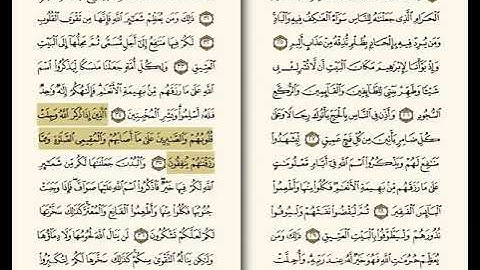 الْحَرَامِ الَّذِي جَعَلْنَاهُ لِلنَّاسِ سَوَاءً الْعَاكِفُ فِيهِ وَالْبَادِ
وَمَن يُرِدْ فِيهِ بِإِلْحَادٍ بِظُلْمٍ نُّذِقْهُ مِنْ عَذَابٍ أَلِيمٍ ٢٥
وَإِذْ بَوَّأْنَا لِإِبْرَاهِيمَ مَكَانَ الْبَيْتِ أَن لَّا تُشْرِكْ بِي
شَيْئًا وَطَهِّرْ بَيْتِيَ لِلطَّائِفِينَ وَالْقَائِمِينَ وَالرُّكَّعِ
السُّجُودِ ٢٦ وَأَذِّن فِي النَّاسِ بِالْحَجِّ يَأْتُوكَ رِجَالًا وَعَلَىٰ
كُلِّ ضَامِرٍ يَأْتِينَ مِن كُلِّ فَجٍّ عَمِيقٍ ٢٧ لِّيَشْهَدُوا
مَنَافِعَ لَهُمْ وَيَذْكُرُوا اسْمَ اللَّهِ فِي أَيَّامٍ مَّعْلُومَاتٍ
عَلَىٰ مَا رَزَقَهُم مِّن بَهِيمَةِ الْأَنْعَامِ فَكُلُوا مِنْهَا وَأَطْعِمُوا
الْبَائِسَ الْفَقِيرَ ٢٨ ثُمَّ لْيَقْضُوا تَفَثَهُمْ وَلْيُوفُوا
نُذُورَهُمْ وَلْيَطَّوَّفُوا بِالْبَيْتِ الْعَتِيقِ ٢٩ ذَٰلِكَ وَمَن
يُعَظِّمْ حُرُمَاتِ اللَّهِ فَهُوَ خَيْرٌ لَّهُ عِندَ رَبِّهِ
ذَٰلِكَ وَمَن يُعَظِّمْ شَعَائِرَ اللَّهِ فَإِنَّهَا مِن تَقْوَى الْقُلُوبِ
٣٢ لَكُمْ فِيهَا مَنَافِعُ إِلَىٰ أَجَلٍ مُّسَمًّى ثُمَّ مَحِلُّهَا إِلَى الْبَيْتِ
الْعَتِيقِ ٣٣ وَلِكُلِّ أُمَّةٍ جَعَلْنَا مَنسَكًا لِّيَذْكُرُوا اسْمَ
اللَّهِ عَلَىٰ مَا رَزَقَهُم مِّن بَهِيمَةِ الْأَنْعَامِ فَإِلَٰهُكُمْ إِلَٰهٌ وَاحِدٌ
فَلَهُ أَسْلِمُوا وَبَشِّرِ الْمُخْبِتِينَ ٣٤ الَّذِينَ إِذَا ذُكِرَ اللَّهُ وَجِلَتْ
قُلُوبُهُمْ وَالصَّابِرِينَ عَلَىٰ مَا أَصَابَهُمْ وَالْمُقِيمِي الصَّلَاةِ وَمِمَّا
رَزَقْنَاهُمْ يُنفِقُونَ ٣٥ وَالْبُدْنَ جَعَلْنَاهَا لَكُم مِّن شَعَائِرِ
اللَّهِ لَكُمْ فِيهَا خَيْرٌ فَاذْكُرُوا اسْمَ اللَّهِ عَلَيْهَا صَوَافَّ فَإِذَا وَجَبَتْ
جُنُوبُهَا فَكُلُوا مِنْهَا وَأَطْعِمُوا الْقَانِعَ وَالْمُعْتَرَّ كَذَٰلِكَ سَخَّرْنَاهَا
لَكُمْ لَعَلَّكُمْ تَشْكُرُونَ ٣٦ لَن يَنَالَ اللَّهَ لُحُومُهَا وَلَا دِمَاؤُهَا
وَلَٰكِن يَنَالُهُ التَّقْوَىٰ مِنكُمْ كَذَٰلِكَ سَخَّرَهَا لَكُمْ لِتُكَبِّرُوا